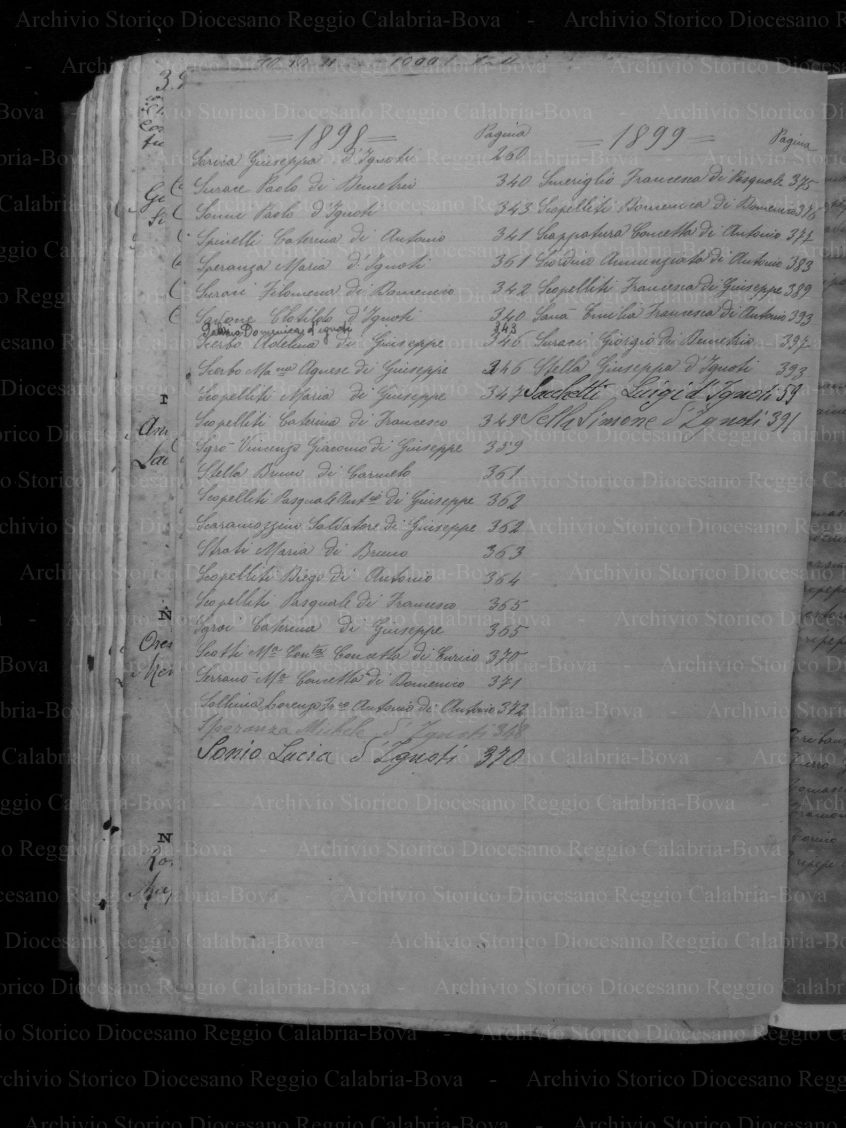 =1898= Pagina
Sorcia Giuseppa d'Ignoti 260
Surace Paolo di Demetrio 340
Sonni Paolo d'Ignoti 343
Spinelli Caterina di Antonio 341
Speranza Maria d'Ignoti 361
Suraci Filomena di Domenico 342
Sarlone Clotilde d'Ignoti 340
Domenica d'Ignoti 343
Scerbo Adelina di Giuseppe 346
Scerbo Mª Agnese di Giuseppe 346
Scopelliti Maria di Giuseppe 347
Scopelliti Caterina di Francesco 349
Sgrò Vincenzo Giacomo di Giuseppe 359
Stella Bruno di Carmelo 361
Scopelliti Pasquale Antº di Giuseppe 362
Scaramozzino Salvatore di Giuseppe 362
Strati Maria di Bruno 363
Scopelliti Diego di Antonio 364
Scopelliti Pasquale di Francesco 365
Sgroi Caterina di Giuseppe 365
Scotti Mª Concetta di Enrico 370
Serrano Mª Concetta di Domenico 371
Sollima Lorenzo Frco Antonio di Antonio 372
Speranza Michele d'Ignoti 368
Sonio Lucia d'Ignoti 370
=1899= Pagina
Smeriglio Francesca di Pasquale 375
Scopelliti Domenica di Domenico 376
Scappatura Concetta di Antonio 377
Scordino Annunziata di Antonio 383
Scopelliti Francesca di Giuseppe 389
Sana Emilia Francesca di Antonio 393
Suraci Giorgio di Demetrio 397
Stella Giuseppa d'Ignoti 393
Sacchetti Luigi d'Ignoti 59
Sella Simone d'Ignoti 391
Archivio Storico Diocesano Reggio Calabria-Bova